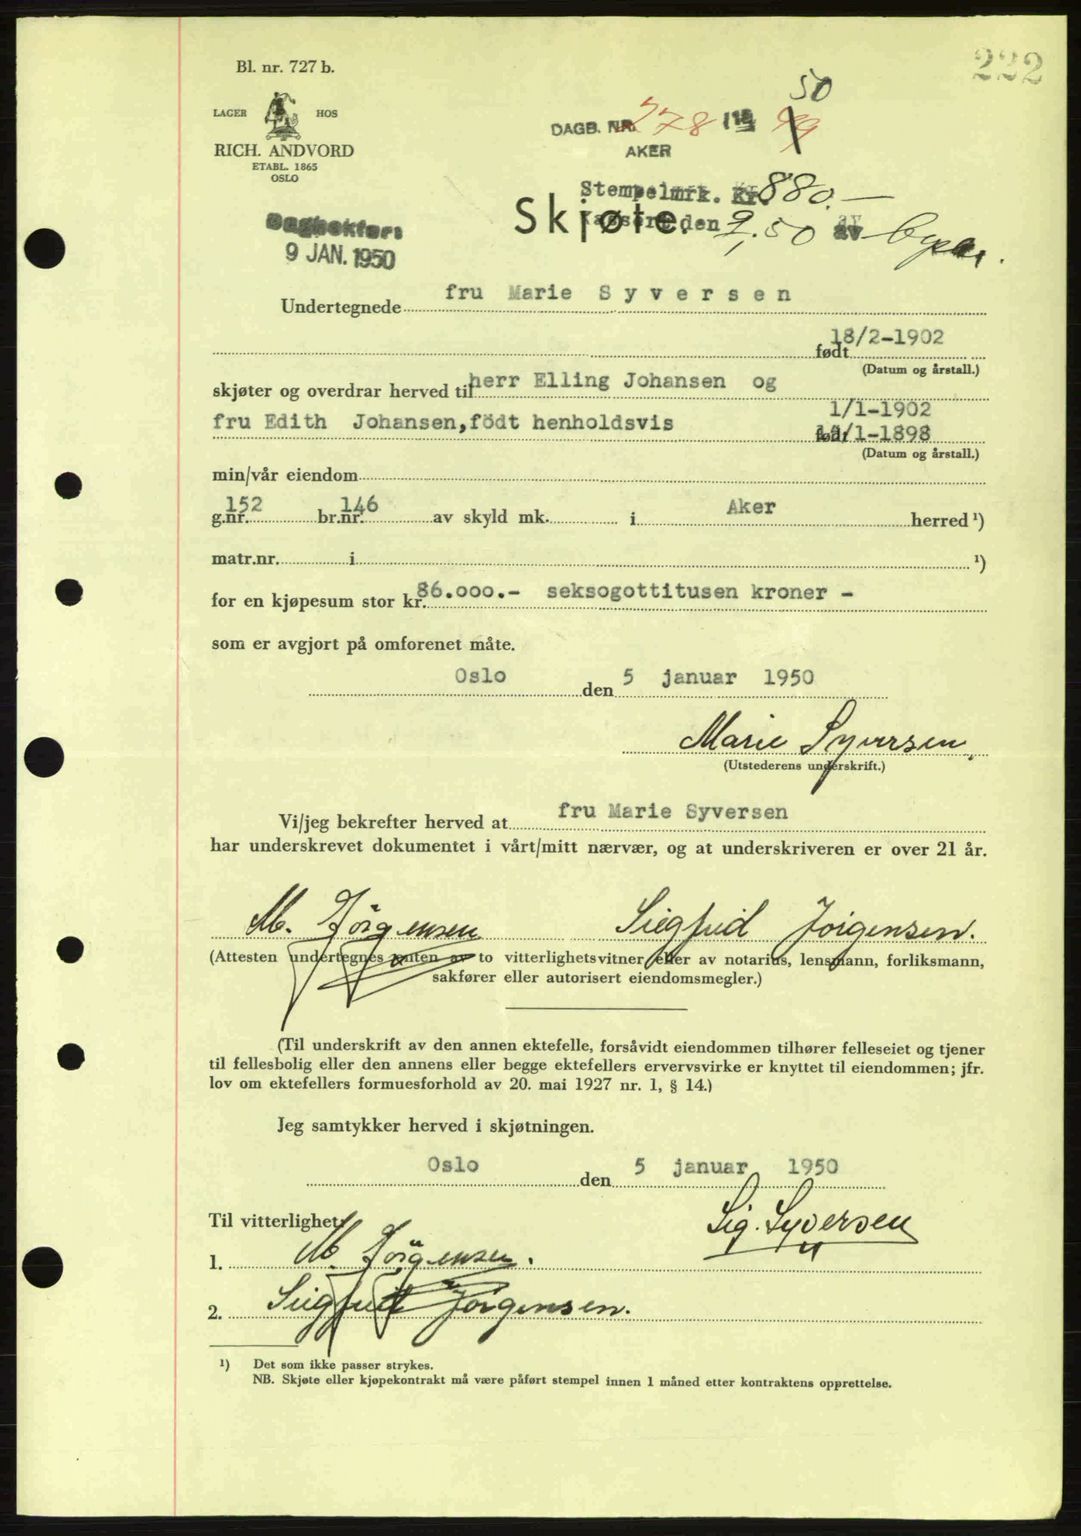 222
Bl. nr. 727 b.
LAGER HOS
RICH. ANDVORD
ETABL. 1865
OSLO
50
DAGB. NR. 278 19 49
AKER
Stempelmrk. Kr. 880.-
Skjøte.
den 2,50 av
Dagbokført
9 JAN. 1950
Undertegnede fru Marie Syversen
født 18/2-1902
(Datum og årstall.)
skjøter og overdrar herved til herr Elling Johansen og
fru Edith Johansen, födt henholdsvis 1/1-1902
født /1-1898
(Datum og årstall.)
min/vår eiendom
g.nr. 152 br.nr. 146 av skyld mk. i Aker herred ¹)
matr.nr. i ¹)
for en kjøpesum stor kr. 86.000.- seksogottitusen kroner -
som er avgjort på omforenet måte.
Oslo den 5 januar 1950
Marie Syversen
(Utstederens underskrift.)
Vi/jeg bekrefter herved at fru Marie Syversen
har underskrevet dokumentet i vårt/mitt nærvær, og at underskriveren er over 21 år.
M. Jörgensen Siegfrid Jörgensen.
(Attesten undertegnes enten av to vitterlighetsvitner eller av notarius, lensmann, forliksmann,
sakfører eller autorisert eiendomsmegler.)
(Til underskrift av den annen ektefelle, forsåvidt eiendommen tilhører felleseiet og tjener
til fellesbolig eller den annens eller begge ektefellers ervervsvirke er knyttet til eiendommen; jfr.
lov om ektefellers formuesforhold av 20. mai 1927 nr. 1, § 14.)
Jeg samtykker herved i skjøtningen.
Oslo den 5 januar 1950
Til vitterlighet: Sig. Syversen
1. M. Jörgensen.
2. Siegfrid Jörgensen.
¹) Det som ikke passer strykes.
NB. Skjøte eller kjøpekontrakt må være påført stempel innen 1 måned etter kontraktens opprettelse.